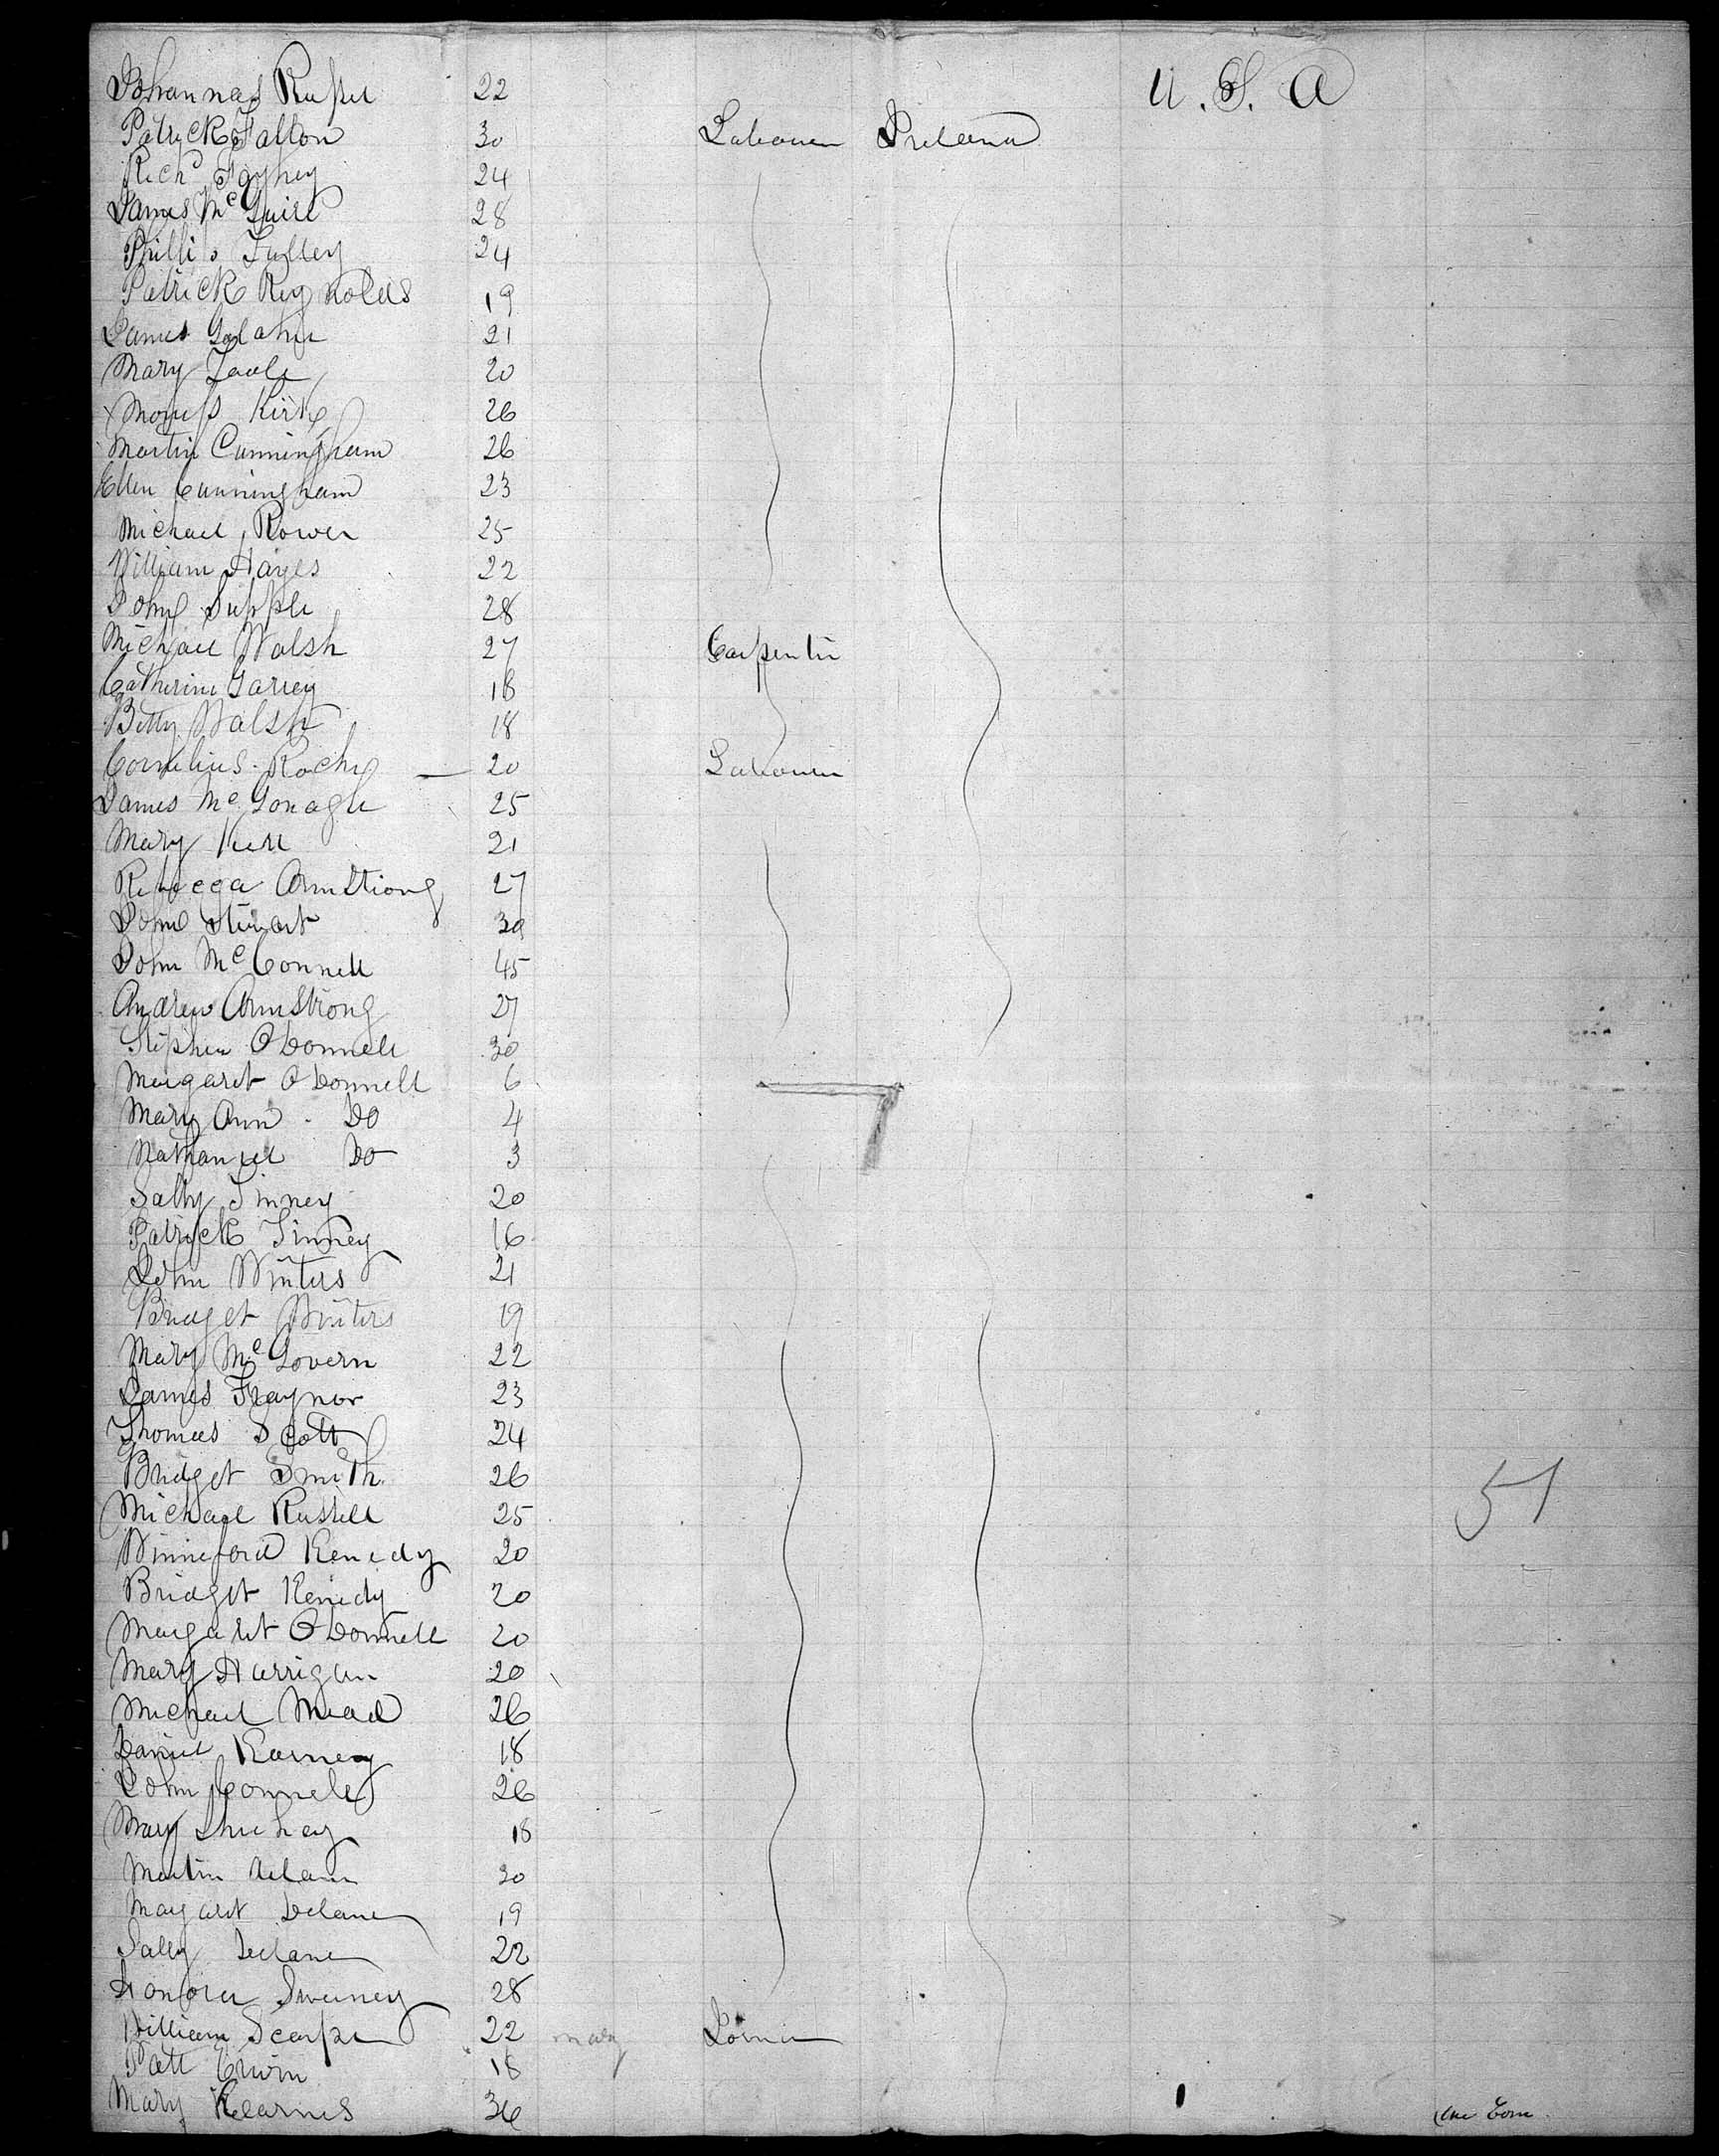 Johannas 22 U. S. A
Patrick Fallon 30 Labourer Ireland
Richd 24
James McGuire 28
Phillip 24
Patrick Reynolds 19
James 21
Mary Toole 20
Kirk 26
Martin Cunningham 26
Ellen Cunningham 23
Michael Rower 25
William Hayes 22
John Supple 28
Michael Walsh 27 Carpenter
Catherine Garvey 18
Betty Walsh 18
Cornelius Roche 20 Labourer
James McGonagle 25
Mary Kerr 21
Rebecca Armstrong 27
John Stewart 30
John McConnell 45
Andrew Armstrong 27
Stephen O Donnell 30
Margaret O Donnell 6
Mary Ann Do 4
Nathaniel Do 3
Sally Tinney 20
Patrick Tinney 16
John Winters 21
Bridget Winters 19
Mary McGovern 22
James Traynor 23
Thomas Scott 24
Bridget Smith 26
Michael Russell 25 51
Winneford Kenedy 20
Bridget Kenedy 20
Margaret O Donnell 20
Mary Harrigan 20
Michael Mead 26
Daniel Kearney 18
John Connell 26
Mary Sheehey 18
Martin 20
Margaret Delane 19
Sally Delane 22
Honora Sweeney 28
William 22
Patt Erwin 18
Mary Kearnes 36